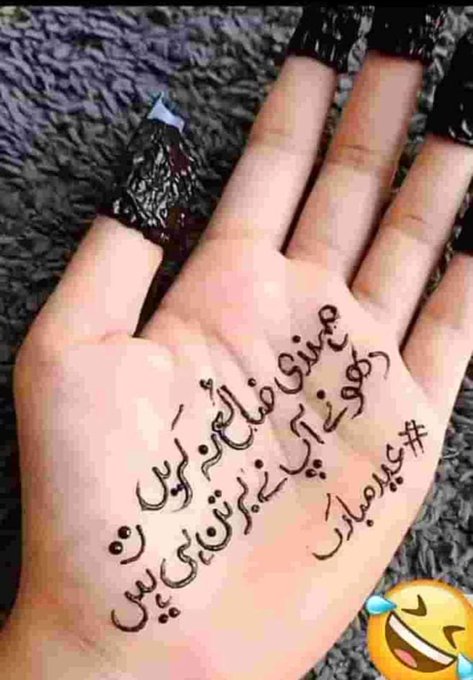 مہندی ضائع نہ کریں
دھونے آپ نے برتن ہی ہیں
#عید مبارک